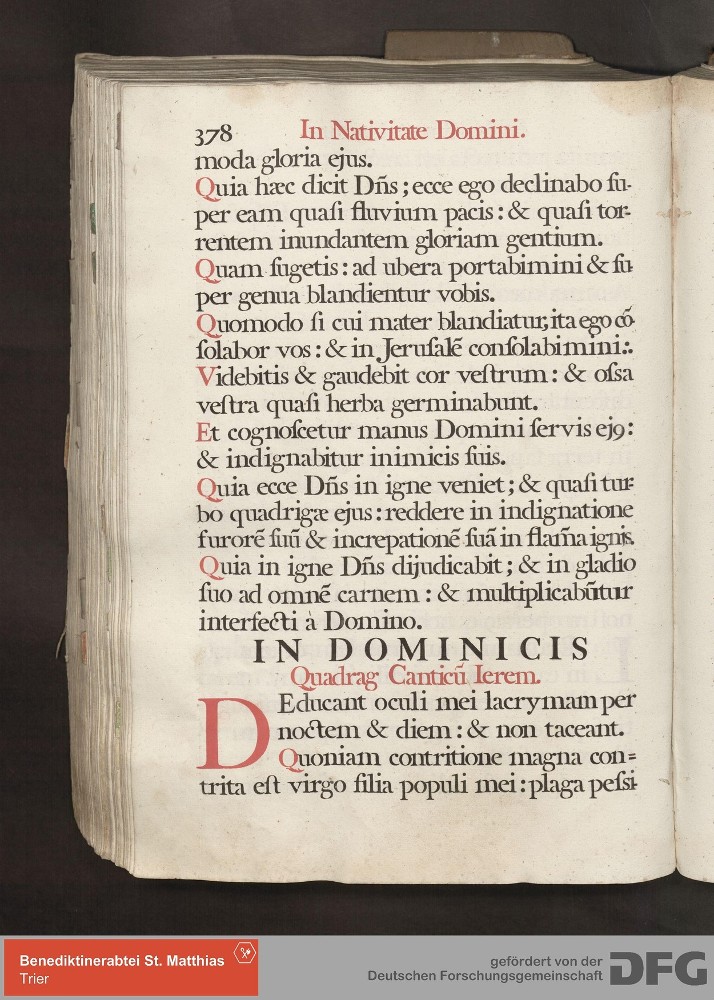 378 In Nativitate Domini.
moda gloria ejus.
Quia hæc dicit Dñs ; ecce ego declinabo ſu-
per eam quaſi fluvium pacis : & quaſi tor-
rentem inundantem gloriam gentium.
Quam ſugetis : ad ubera portabimini & ſu
per genua blandientur vobis.
Quomodo ſi cui mater blandiatur, ita ego cō-
ſolabor vos : & in Jeruſalē conſolabimini :.
Videbitis & gaudebit cor veſtrum : & oſsa
veſtra quaſi herba germinabunt.
Et cognoſcetur manus Domini ſervis ejꝰ :
& indignabitur inimicis ſuis.
Quia ecce Dñs in igne veniet ; & quaſi tur-
bo quadrigæ ejus : reddere in indignatione
furorē ſuū & increpationē ſuā in flam̃a ignis.
Quia in igne Dñs dijudicabit ; & in gladio
ſuo ad omnē carnem : & multiplicabūtur
interfecti à Domino.
IN DOMINICIS
Quadrag Canticū Ierem.
DEducant oculi mei lacrymam per
noctem & diem : & non taceant.
Quoniam contritione magna con=
trita eſt virgo filia populi mei : plaga peſsi-
Benediktinerabtei St. Matthias
Trier
gefördert von der
Deutschen Forschungsgemeinschaft DFG